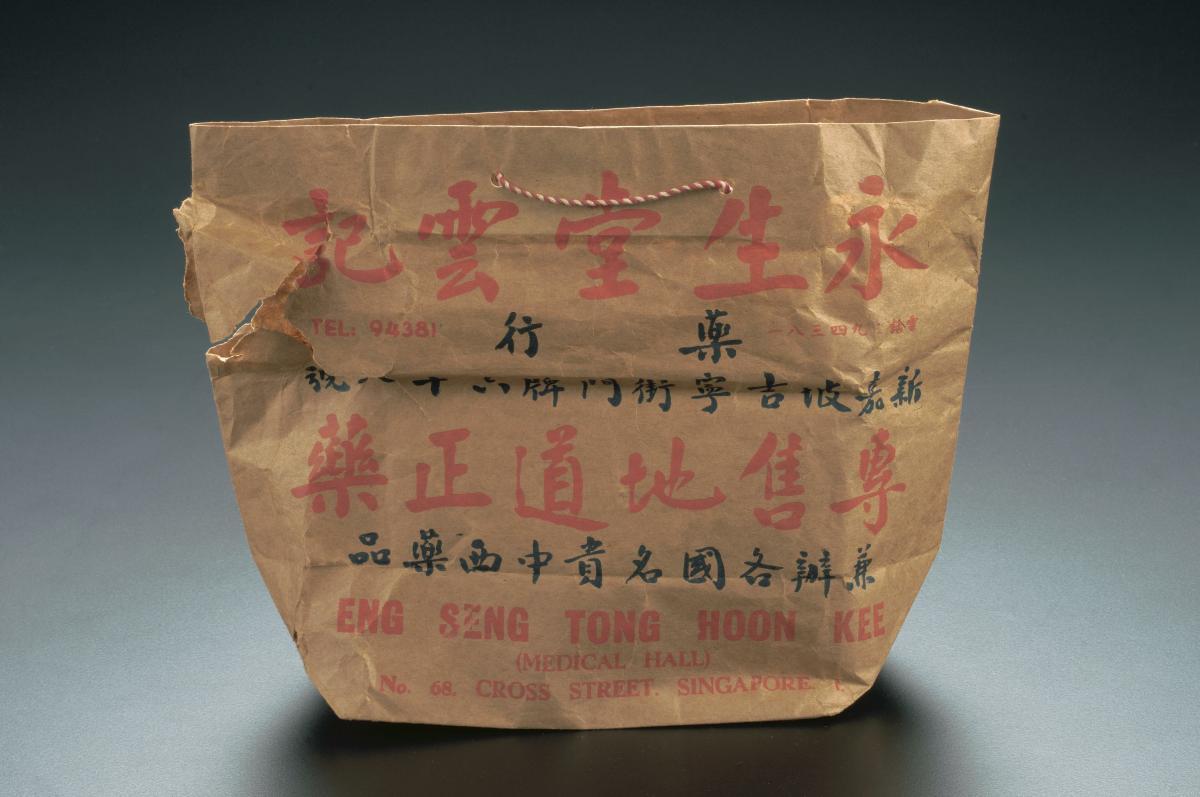 永生堂雲記
電話：九四三八一
藥行
TEL: 94381
新嘉坡吉寧街門牌六十八號
專售地道正藥
兼辦各國名貴中西藥品
ENG SENG TONG HOON KEE
(MEDICAL HALL)
No. 68. CROSS STREET. SINGAPORE.